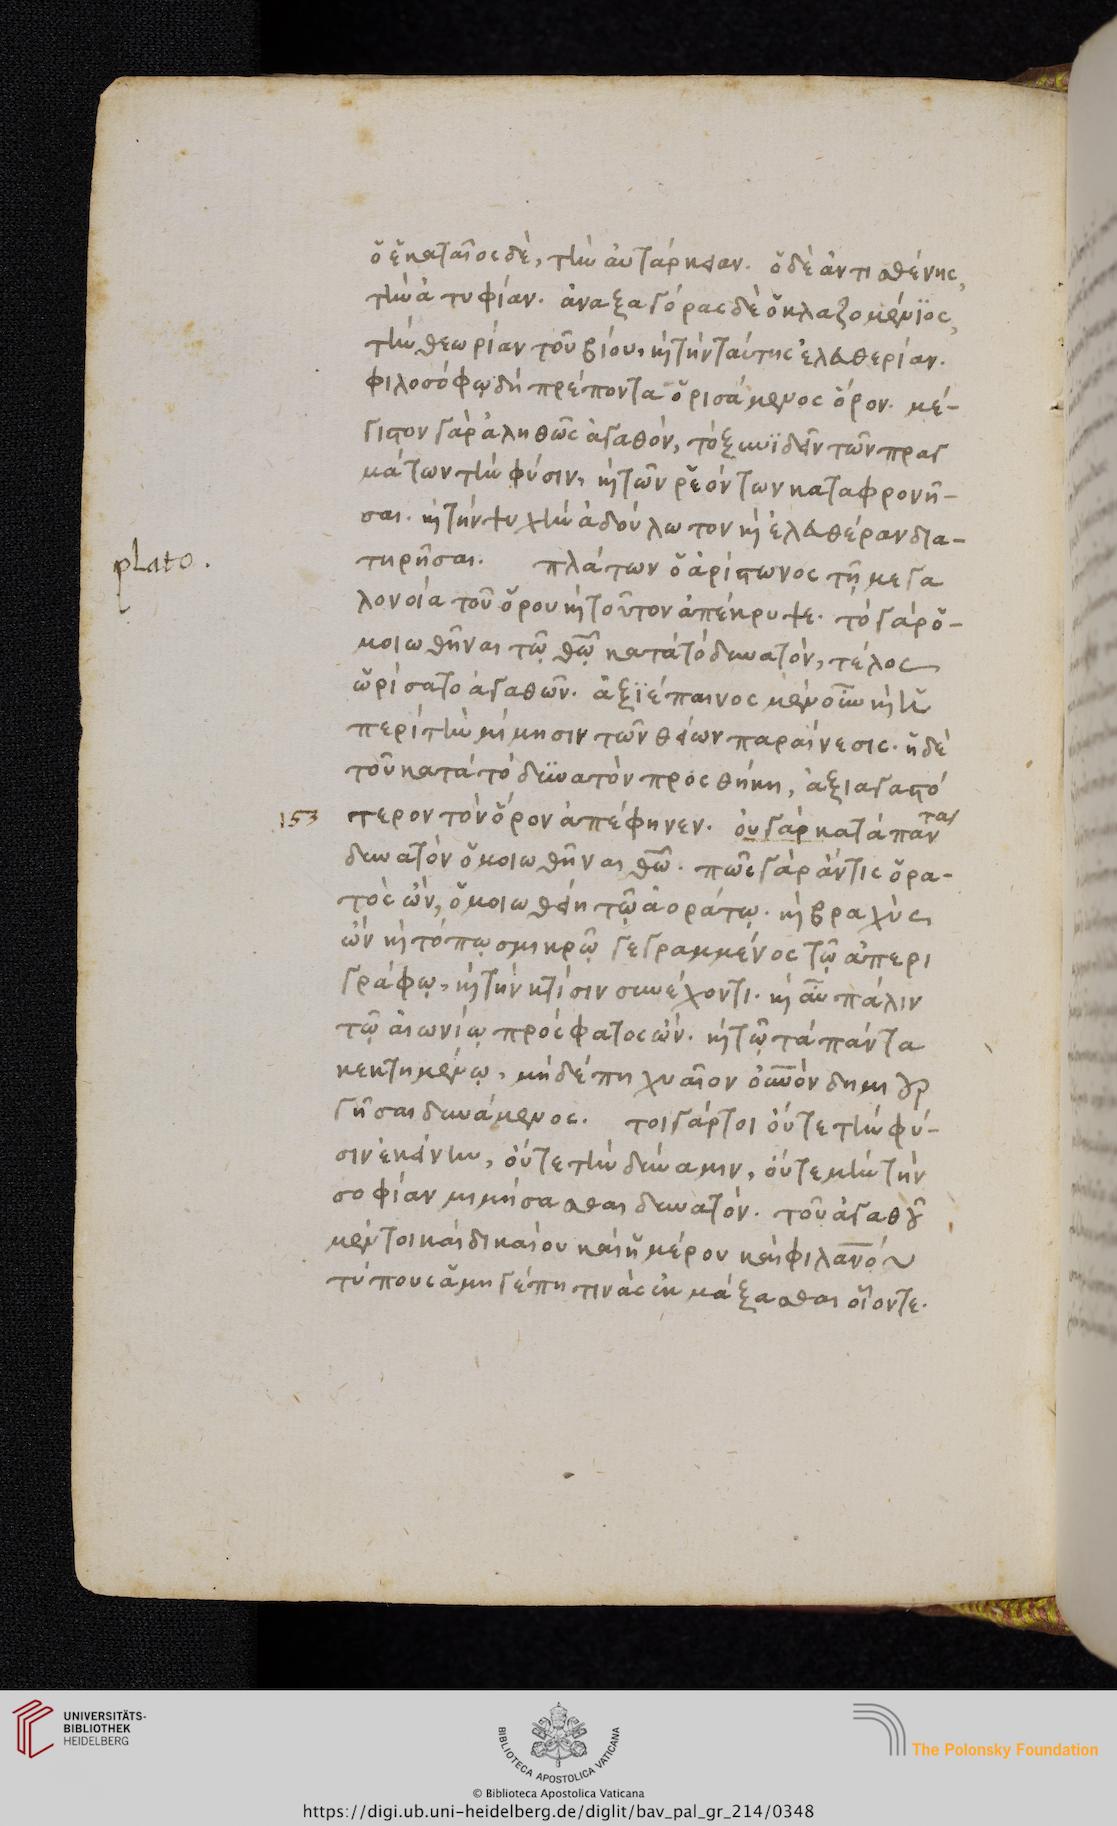 ὁ ἑκαταῖος δὲ, τὴν αὐτάρκειαν. ὁ δὲ ἀντισθένης,
τὴν ἀτυφίαν. ἀναξαγόρας δὲ ὁ κλαζομένϊος,
τὴν θεωρίαν τοῦ βίου, καὶ τὴν ταύτης ἐλευθερίαν.
φιλοσόφῳ δὴ πρέποντα ὁρισάμενος ὅρον. μέ-
γιστον γὰρ ἀληθῶς ἀγαθόν, τὸ ξυνϊδεῖν τῶν πραγ
μάτων τὴν φύσιν, καὶ τῶν ῥεόντων καταφρονῆ-
σαι. καὶ τὴν ψυχὴν ἀδούλωτον καὶ ἐλευθέραν δια-
τηρῆσαι. πλάτων ὁ ἀρίστωνος τῇ μεγα
λονοία τοῦ ὅρου καὶ τοῦτον ἀπέκρυψε. τὸ γὰρ ὁ-
μοιωθῆναι τῷ θῷ κατὰ τὸ δυνατόν, τέλος
ὡρίσατο ἀγαθῶν. ἀξϊέπαινος μὲν οὖν καὶ ἡ
περὶ τὴν μίμησιν τῶν θείων παραίνεσις. ἡ δὲ
τοῦ κατὰ τὸ δυνατὸν προσθήκη, ἀξιαγαστό
τερον τὸν ὅρον ἀπέφηνεν. οὐ γὰρ κατὰ πάντας
δυνατὸν ὁμοιωθῆναι θῷ. πῶς γὰρ ἄν τις ὁρα-
τὸς ὢν, ὁμοιωθείη τῷ ἀοράτῳ. καὶ βραχὺς
ὢν καὶ τόπῳ σμικρῷ γεγραμμένος τῷ ἀπερι
γράφῳ, καὶ τὴν κτίσιν συνέχοντι. καὶ αὖ πάλιν
τῷ αἰωνίῳ πρόσφατος ὤν. καὶ τῷ τὰ πάντα
κεκτημένῳ, μηδέπη χυαῖον οὐνὸν δημιουρ
γῆσαι δυνάμενος. τοιγάρτοι οὔτε τὴν φύ-
σιν ἐκείνην, οὔτε τὴν δύναμιν, οὔτε μὴν τὴν
σοφίαν μιμήσασθαι δυνατόν. τοῦ ἀγαθοῦ
μέντοι καὶ δικαίου καὶ ἡμέρου καὶ φιλανοῦ
τύπους ἁμηγέπη τινὰς ἐκμάξασθαι οἷόντε.
plato.
153
UNIVERSITÄTS-
BIBLIOTHEK
HEIDELBERG
BIBLIOTECA APOSTOLICA VATICANA
The Polonsky Foundation
© Biblioteca Apostolica Vaticana
https://digi.ub.uni-heidelberg.de/diglit/bav_pal_gr_214/0348